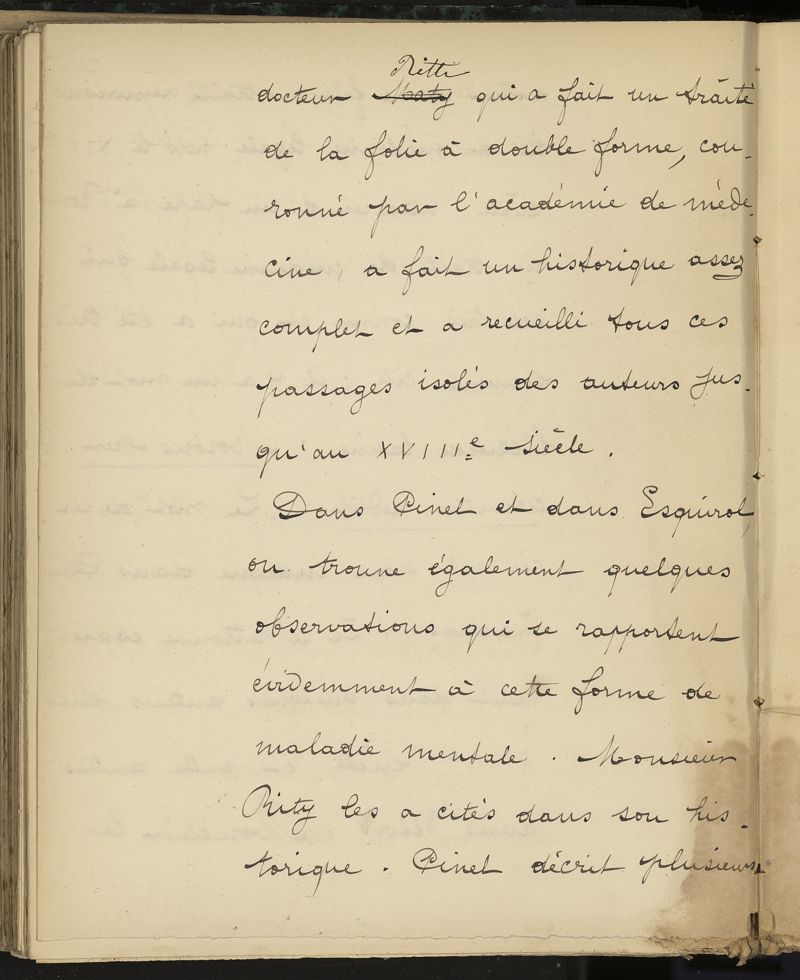 Ritti
docteur Maty qui a fait un traité
de la folie à double forme, cou-
ronné par l'académie de méde-
cine, a fait un historique assez
complet et a recueilli tous ces
passages isolés des auteurs jus-
qu'au XVIIIe siècle.
Dans Pinel et dans Esquirol,
on trouve également quelques
observations qui se rapportent
évidemment à cette forme de
maladie mentale. Monsieur
Rity les a cités dans son his-
torique. Pinel décrit plusieurs